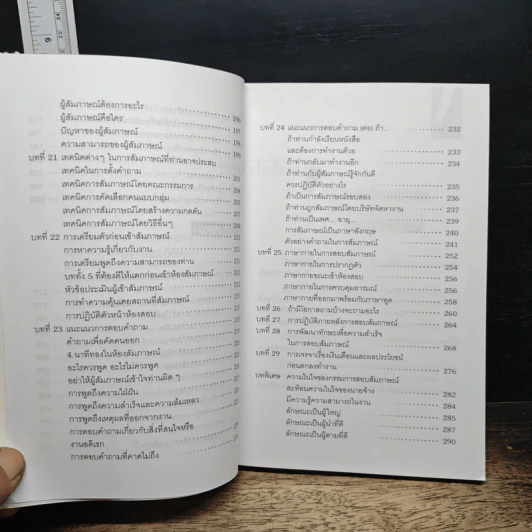 ผู้สัมภาษณ์ต้องการอะไร
ผู้สัมภาษณ์คือใคร 196
ปัญหาของผู้สัมภาษณ์ 197
ความสามารถของผู้สัมภาษณ์ 195
บทที่ 21 เทคนิคต่างๆ ในการสัมภาษณ์ที่ท่านอาจประสบ
เทคนิคในการตั้งคำถาม
เทคนิคการสัมภาษณ์โดยคณะกรรมการ
เทคนิคการคัดเลือกคนแบบกลุ่ม
เทคนิคการสัมภาษณ์โดยสร้างความกดดัน
เทคนิคการสัมภาษณ์โดยวิธีอื่นๆ
บทที่ 22 การเตรียมตัวก่อนเข้าสัมภาษณ์
การหาความรู้เกี่ยวกับงาน
การเตรียมพูดถึงความสามารถของท่าน
บททั้ง 5 ที่ต้องตีให้แตกก่อนเข้าห้องสัมภาษณ์
หัวข้อประเมินผู้เข้าสัมภาษณ์
การทำความคุ้นเคยสถานที่สัมภาษณ์
การปฏิบัติตัวหน้าห้องสอบ
บทที่ 23 แนะแนวการตอบคำถาม
คำถามเพื่อคัดคนออก
4 นาทีทองในห้องสัมภาษณ์
อะไรควรพูด อะไรไม่ควรพูด
อย่าให้ผู้สัมภาษณ์เข้าใจท่านผิด ๆ
การพูดถึงความใฝ่ฝัน
การพูดถึงความสำเร็จและความล้มเหลว
การพูดถึงเหตุผลที่ออกจากงาน
การตอบคำถามเกี่ยวกับสิ่งที่สนใจหรือ
งานอดิเรก
การตอบคำถามที่คาดไม่ถึง
บทที่ 24 แนะแนวการตอบคำถาม (ต่อ) ถ้า... 232
ถ้าท่านกำลังเรียนหนังสือ
และต้องการทำงานด้วย 233
ถ้าท่านกลับมาทำงานอีก 234
ถ้าท่านกับผู้สัมภาษณ์รู้จักกันดี
ควรปฏิบัติตัวอย่างไร 235
ถ้าเป็นการสัมภาษณ์รอบสอง 236
ถ้าท่านถูกสัมภาษณ์โดยบริษัทจัดหางาน 237
ถ้าท่านเป็นเพศ... อายุ... 239
การสัมภาษณ์เป็นภาษาอังกฤษ 240
ตัวอย่างคำถามในการสัมภาษณ์ 241
บทที่ 25 ภาษากายในการสอบสัมภาษณ์ 252
ภาษากายในการปรากฏตัว 254
ภาษากายขณะเข้าห้องสอบ 256
ภาษากายในการควบคุมอารมณ์ 256
ภาษากายที่ออกมาพร้อมกับภาษาพูด 258
บทที่ 26 ถ้ามีโอกาสถามบ้างจะถามอะไร 260
บทที่ 27 การปฏิบัติภายหลังการสอบสัมภาษณ์ 264
บทที่ 28 การพัฒนาทักษะเพื่อความสำเร็จ
ในการสอบสัมภาษณ์ 268
บทที่ 29 การเจรจาเรื่องเงินเดือนและผลประโยชน์
ก่อนตกลงทำงาน 276
บทพิเศษ ความในใจของกรรมการสอบสัมภาษณ์
สะท้อนความในใจของนายจ้าง 282
มีความรู้ความสามารถในงาน 284
ลักษณะเป็นผู้ใหญ่ 285
ลักษณะเป็นผู้นำที่ดี 287
ลักษณะเป็นผู้ตามที่ดี 290